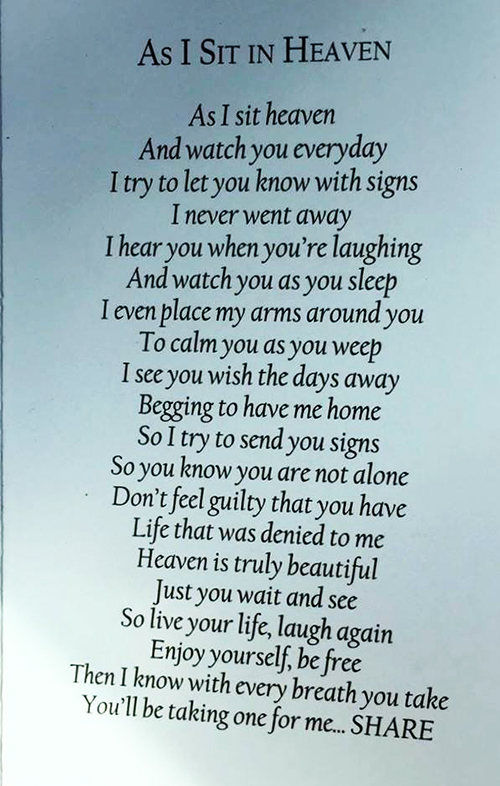 As I Sit in Heaven
As I sit heaven
And watch you everyday
I try to let you know with signs
I never went away
I hear you when you're laughing
And watch you as you sleep
I even place my arms around you
To calm you as you weep
I see you wish the days away
Begging to have me home
So I try to send you signs
So you know you are not alone
Don't feel guilty that you have
Life that was denied to me
Heaven is truly beautiful
Just you wait and see
So live your life, laugh again
Enjoy yourself, be free
Then I know with every breath you take
You'll be taking one for me... SHARE